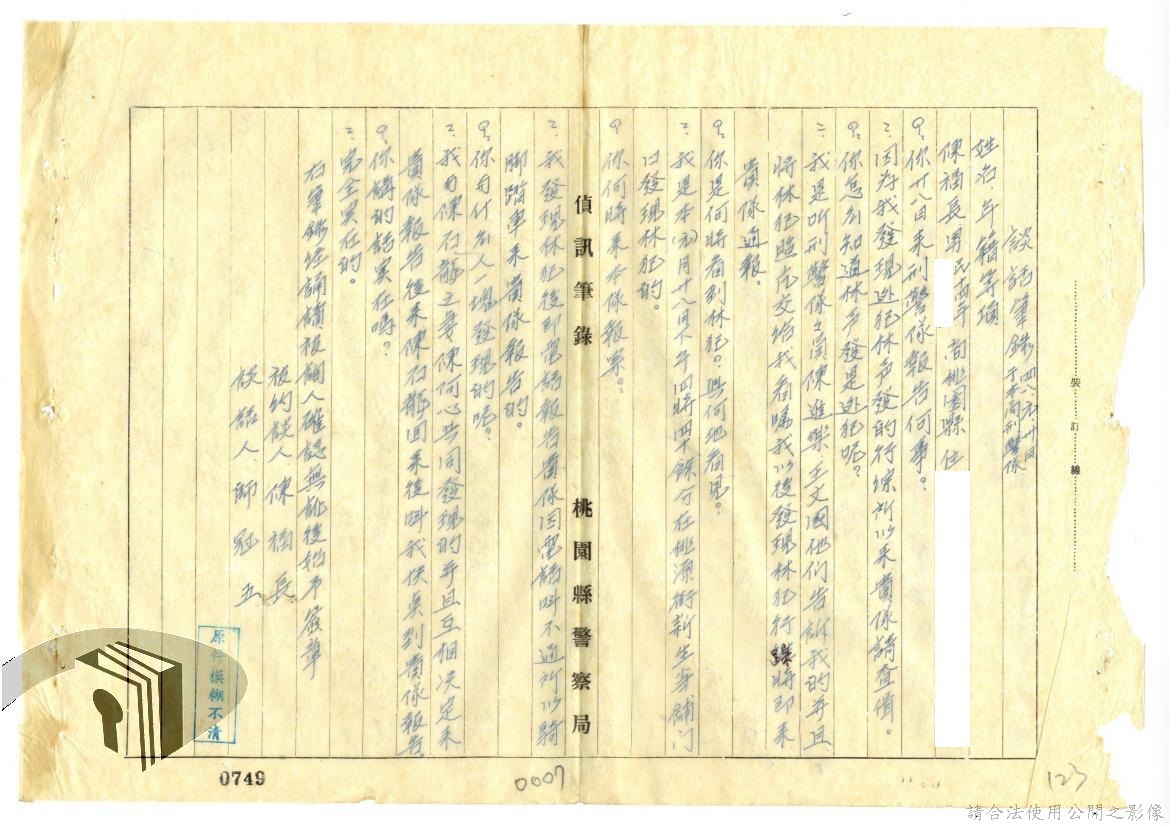 裝訂線
談話筆錄 四八元卅日
于本局刑警隊
姓名年籍等項
陳福長男民 年 尚桃園縣 住
Q:你廿八日來刑警隊報告何事?
=:因为我發現逃犯林声發的行綜所以來貴隊請查偵。
Q:你怎么知道林声發是逃犯呢?
=:我是听刑警隊之 陳進樂王文國他们告訴我的并且
將林犯照片交给我看嘱我以後發現林犯行 時即來
貴隊通報。
Q:你是何時看到林犯?與何地看見?
=:我是本(元)月廿八日下午四時四十餘分在桃源街新生 舖门
口發現林犯的。
Q:你何時來本隊報案。
=:我發現林犯後即電話報告貴隊因電話叫不通所以騎
脚踏車來貴隊報告的。
偵訊筆錄 桃園縣警察局
Q:你和什么人一塊發現的呢?
=:我和陳石龍之妻陳何心共同發現的并且互相决定來
貴隊報告後來陳石龍回來後叫我快奌到貴隊報告
Q:你講的話实在嗎?
=:完全实在的。
右筆錄經誦讀被詢人確認無訛後始予簽章
被約談人 陳福長
談話人 師冠五
原件模糊不清
0749
0007
123
請合法使用公開之影像